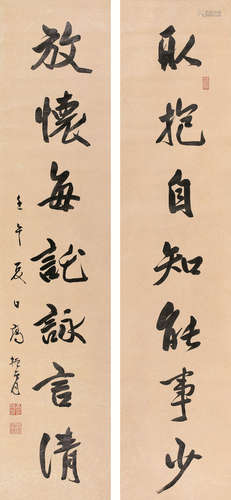 取抱自知能事少
放懷每託詠言清
壬午夏日高振霄